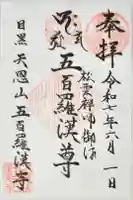 奉拝
令和七年六月一日
松雲禅師御作
五百羅漢尊
目黒天恩山五百羅漢寺